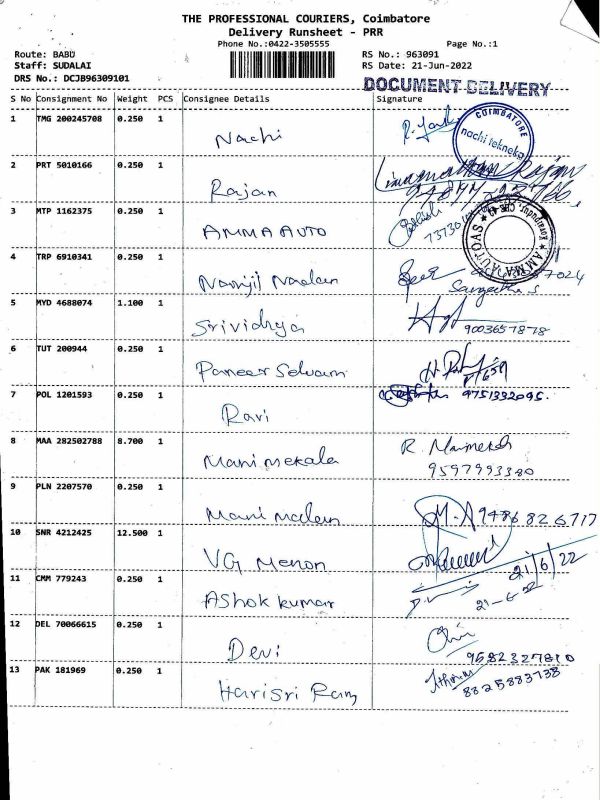 THE PROFESSIONAL COURIERS, Coimbatore
Delivery Runsheet - PRR
Phone No.:0422-3505555
Page No.:1
Route: BABU
RS No.: 963091
Staff: SUDALAI
RS Date: 21-Jun-2022
DRS No.: DCJB96309101
DOCUMENT DELIVERY
S No Consignment No Weight PCS Consignee Details Signature
1 TMG 200245708 0.250 1 Nachi
COIMBATORE
nachi tekneka
2 PRT 5010166 0.250 1 Rajan
3 MTP 1162375 0.250 1 AMMA AUTO
4 TRP 6910341 0.250 1 Nanjil Nadan
Sangeetha S
5 MYD 4688074 1.100 1 Srividhya
9003657878
6 TUT 200944 0.250 1 Paneer Selvam
7 POL 1201593 0.250 1 Ravi 9751332095.
8 MAA 282502788 8.700 1 Manimekala R.
9597993380
9 PLN 2207570 0.250 1 Mani malan M.A 9486826717
10 SNR 4212425 12.500 1 VG Menon
21/6/22
11 CMM 779243 0.250 1 Ashok kumar
21-6-22
12 DEL 70066615 0.250 1 Devi
9582327810
13 PAK 181969 0.250 1 Harisri Ram
8825883738